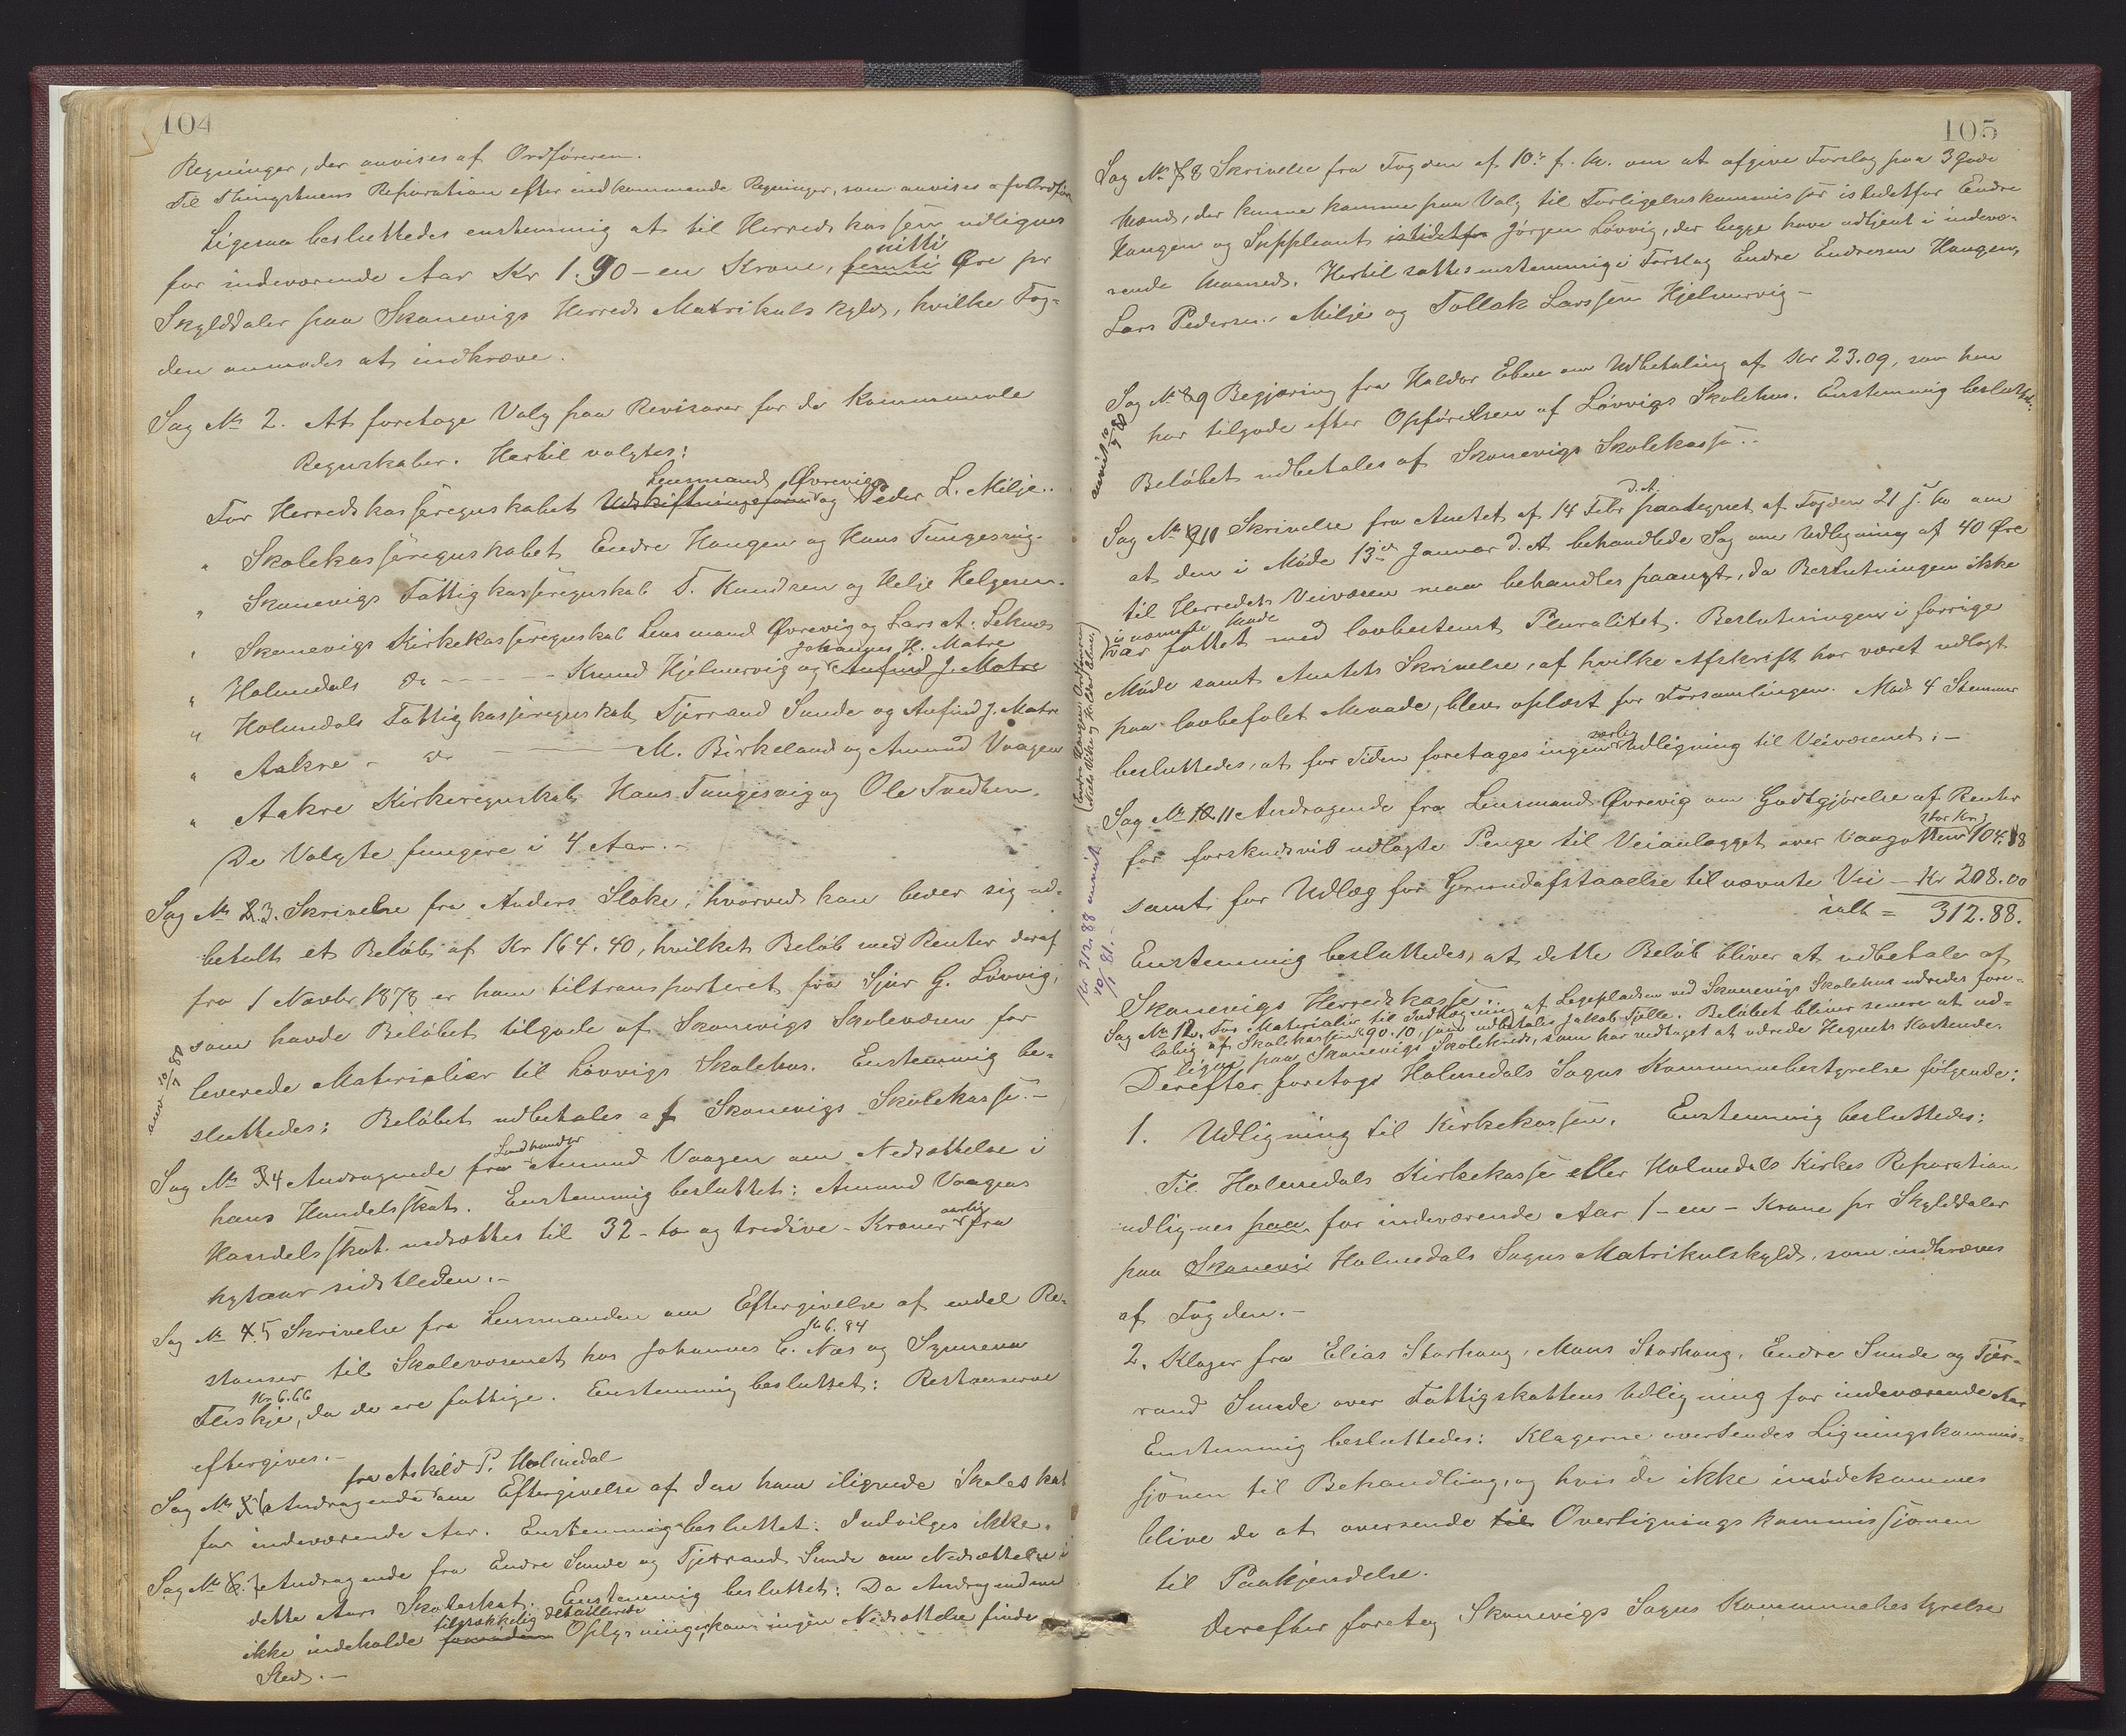 104
Regninger, der anvises af Ordföreren.
Til Thingstuens Reparation efter indkommende Regninger, som anvises af Ordför
Ligesaa besluttedes enstemmig at til Herredskassen udlignes
for indeværende Aar Kr 1.90 - en Krone, femti nitti Øre pr
Skylddaler paa Skonevigs Herreds Matrikulskyld, hvilke Fog-
den anmodes at indkræve.
Sag No 2. At foretage Valg paa Revisorer for de Kommunale
Regnskaber. Hertil valgtes:
For Herredskasseregnskabet Udskiftningsform Lensmand Øvrevig og Peder L. Milje..
" Skolekasseregnskabet Endre Haugen og Hans Tungesvig.
" Skonevigs Fattigkasseregnskab T. Knudsen og Helje Helgesen.
" Skonevigs Kirkekasseregnskab Lensmand Øvrevig og Lars A. Leknæs
" Holmedals do - - - - Knud Hjelmervig og Anfind J. Matre Johannes H. Matre
" Holmedals Fattigkasseregnskab Tjerrand Sunde og Anfind J. Matre
" Aakre - do - - - M. Birkeland og Amund Vaagen
" Aakre Kirkeregnskab Hans Tungesvig og Ole Tvedten.
De Valgte fungere i 4 Aar. -
Sag No 2.3. Skrivelse fra Anders Sloke, hvorved han beder sig ud-
betalt et Beløb af Kr 164.40, hvilket Beløb med Renter deraf
fra 1 Novbr. 1878 er ham tiltransporteret fra Sjur G. Lövvig,
som havde Beløbet tilgode af Skonevigs Skolevæsen for
leverede Materialier til Lövvigs Skolehus. Enstemmig be-
sluttedes: Beløbet udbetales af Skonevigs Skolekasse. -
anv. 10/7 80
Sag No 3 4 Andragende fra Landhandler Amund Vaagen om Nedsættelse i
hans Handelsskat. Enstemmig besluttet: Amund Vaagens
Handelsskat nedsættes til 32 - to og tredive - Kroner aarlig fra
Nytaar sidstleden. -
Sag No 4.5 Skrivelse fra Lensmanden om Eftergivelse af endel Re-
stanser til Skolevæsenet hos Johannes C. Næs Kr 6.94 og Synneva
Fliskje, Kr 6.66 da de ere fattige. Enstemmig besluttet: Restanserne
eftergives. -
Sag No 5 6 Andragende fra Askild P. Holmedal om Eftergivelse af den ham ilignede Skoleskat
for indeværende Aar. Enstemmig besluttet: Indvilges ikke.
Sag No 6. 7 Andragende fra Endre Sunde og Tjerrand Sunde om Nedsættelse i
dette Aars Skoleskat. Enstemmig besluttet: Da Andragendene
ikke indeholde tilstrækkelig detaillerede Oplysninger, kan ingen Nedsættelse finde
Sted. -
105
Sag No 7 8 Skrivelse fra Fogden af 10de f. M. om at afgive Forslag paa 3 gode
Mænd, der kunne komme paa Valg til Forligelseskommissær istedetfor Endre
Haugen og Suppleant istedetfor Jörgen Lövvig, der begge have udtjent i indevæ-
rende Maaned. Hertil sattes enstemmig i Forslag Endre Endresen Haugen,
Lars Pedersen Milje og Tollak Larssen Hjelmervig -
Sag No 8 9 Begjæring fra Haldor Ebne om Udbetaling af Kr 23.09, som han
har tilgode efter Opförelsen af Lövvigs Skolehus. Enstemmig besluttet:
Beløbet udbetales af Skonevigs Skolekasse..
anvist 10/7 80
Sag No 9 10 Skrivelse fra Amtet af 14 Febr d. A. paategnet af Fogden 21 s. M. om
at den i Möde 13de Januar d. A. behandlede Sag om Udligning af 40 Øre
til Herredets Veivæsen maa behandles paanyt, da Beslutningen ikke
i nævnte Möde var fattet med lovbestemt Pluralitet. Beslutningen i forrige
Möde samt Amtets Skrivelse, af hvilke Afskrift har været udlagt
paa lovbefalet Maade, blev oplæst for Forsamlingen. Mod 4 Stemmer
(Endre Haugen, Ordföreren,
Nils Vike og Haldor Ebne)
besluttedes, at for Tiden foretages ingen særlig Udligning til Veivæsenet. -
Sag No 10 11 Andragende fra Lensmand Øvrevig om Godtgjörelse af Renter
for forskudsvis udlagte Penge til Veianlægget over Vaage 104.88
samt for Udlæg for Grundafstaaelse til nævnte Vei - Kr 208.00
ialt = 312.88.
Kr 312.88 anvist
10/1 81. -
Enstemmig besluttedes, at dette Beløb bliver at udbetale af
Skonevigs Herredskasse..
Sag No 12. For Materialier til Indhægning af Legepladsen ved Skonevigs Skolehus udredes fore-
løbig af Skolekassen Kr 90.10, som udbetales Jakob Fjelle. Beløbet bliver senere at ud-
ligne paa Skonevigs Skolekreds, som har vedtaget at udrede Hegnets Kostende.
Derefter foretoges Holmedals Sogns Kommunebestyrelse følgende:
1. Udligning til Kirkekassen. Enstemmig besluttedes:
Til Holmedals Kirkekasse eller Holmedals Kirkes Reparation
udlignes paa for indeværende Aar 1 - en - Krone pr Skylddaler
paa Skonevi Holmedals Sogns Matrikulskyld, som indkræves
af Fogden. -
2. Klager fra Elias Storhaug, Mons Storhaug, Endre Sunde og Tjer-
rand Sunde over Fattigskattens Udligning for indeværende Aar
Enstemmig besluttedes: Klagerne oversendes Ligningskommis-
sjonen til Behandling, og hvis de ikke imödekommes
blive de at oversende til Overligningskommissjonen
til Paakjendelse.
Derefter foretog Skonevigs Sogns Kommunebestyrelse